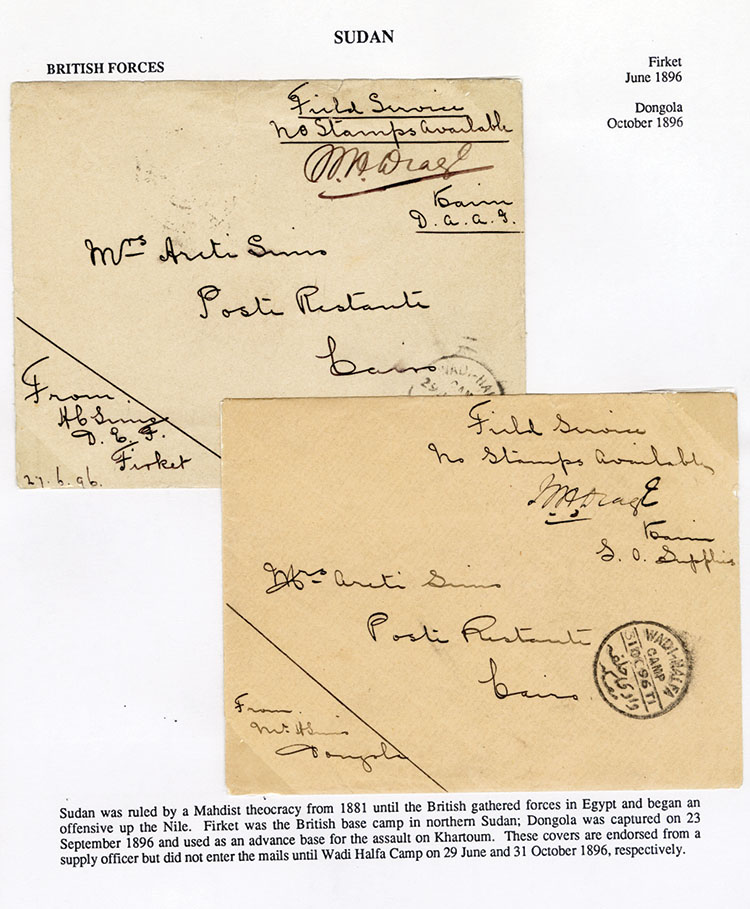 SUDAN
BRITISH FORCES
Firket
June 1896
Dongola
October 1896
Field Service
No Stamps Available
W.H. Drage
Kaim
D. A. A. G.
Mrs Areti Sims
Poste Restante
Cairo
WADI-HA
CAM
29
From
H C Sims
D. E. F.
Firket
27.6.96.
Field Service
No Stamps Available
W.H. Drage
Kaim
S. O. Supplies
Mrs Areti Sims
Poste Restante
Cairo
WADI-HALFA
CAMP
31 OC 96 T1
وادي حلفه
From
Mr H Sims
Dongola
Sudan was ruled by a Mahdist theocracy from 1881 until the British gathered forces in Egypt and began an
offensive up the Nile. Firket was the British base camp in northern Sudan; Dongola was captured on 23
September 1896 and used as an advance base for the assault on Khartoum. These covers are endorsed from a
supply officer but did not enter the mails until Wadi Halfa Camp on 29 June and 31 October 1896, respectively.